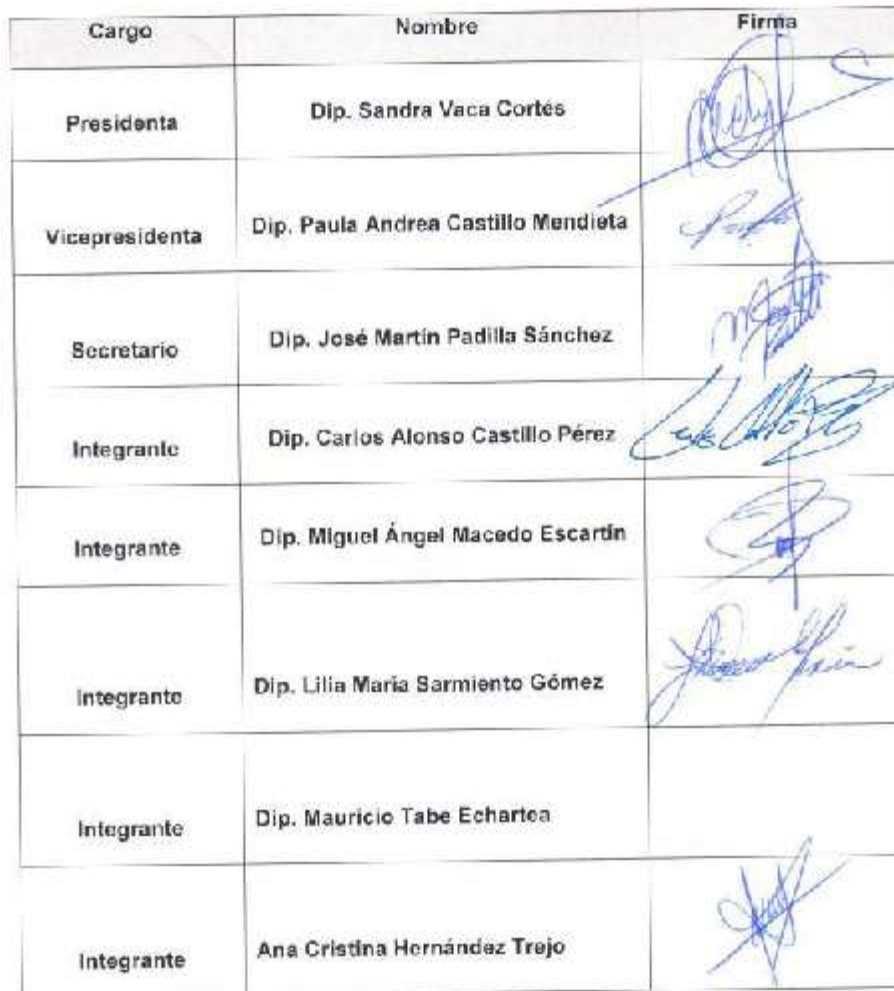 Cargo Nombre Firma
Presidenta Dip. Sandra Vaca Cortés
Vicepresidenta Dip. Paula Andrea Castillo Mendieta
Secretario Dip. José Martín Padilla Sánchez
Integrante Dip. Carlos Alonso Castillo Pérez
Integrante Dip. Miguel Ángel Macedo Escartín
Integrante Dip. Lilia Maria Sarmiento Gómez
Integrante Dip. Mauricio Tabe Echartea
Integrante Ana Cristina Hernández Trejo